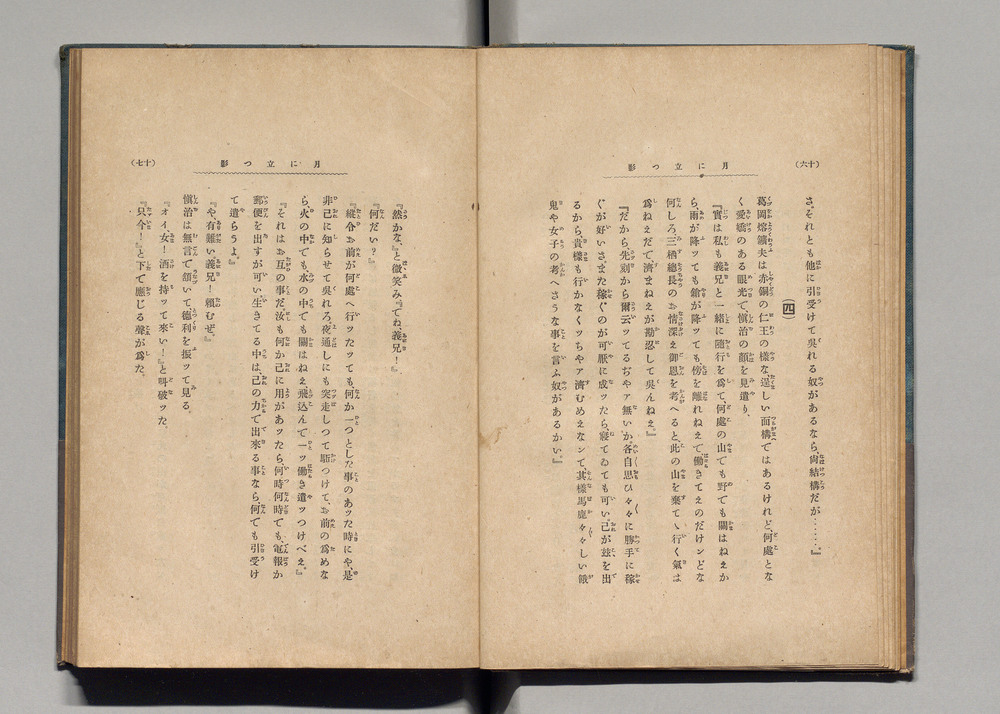 （六十）
月に立つ影
さ。それとも他に引受けて呉れる奴があるなら、尚結構だが……。』
（四）
葛岡熔鑛夫は赤銅の仁王の樣な、逞しい面構ではあるけれど、何處とな
く愛嬌のある眼光で、愼治の顏を見遣り、
『實は私も義兄と一緒に隨行を爲て、何處の山でも野でも關はねえか
ら、雨が降ッても館が降ッても傍を離れねえで、働きてえのだけンどな
何しろ三栖總長のお情深え御恩を考へると、此の山を棄てゝ行く氣は
爲ねえだで、濟まねえが勘忍して呉んねえ。』
『だから、先刻から爾云ッてるぢやァ無いか。各自思ひ々々に勝手に稼
ぐが好いさ。また稼ぐのが可厭に成ッたら、寢てゐても可い。己が玆を出
るから、貴樣も行かなくッちやァ濟むめえなンて、其樣馬鹿々々しい餓
鬼や女子の考へさうな事を言ふ奴があるかい。』
（七十）
月に立つ影
『然かな。』と微笑み、『でね、義兄！』
『何だい？』
『縱令お前が何處へ行ツたッても、何か一つとした事のあッた時にや、是
非己に知らせて呉れろ、夜通しにも突走しつて驅つけて、お前の爲めな
ら、火の中でも、水の中でも關はねえ、飛込んで一ッ働き遣ッつけべえ。』
『それはお互の事だ、汝も何か己に用があッたら、何時何時でも、電報か
郵便を出すが可い、生きてる中は、己の力で出來る事なら、何でも引受け
て遣らうよ。』
『や、有難い義兄！頼むぜ。』
愼治は無言で頷いて、德利を振ッて見る。
『オイ、女！酒を持ッて來い！』と呌破ッた。
『只今！』と下で應じる聲が爲た。